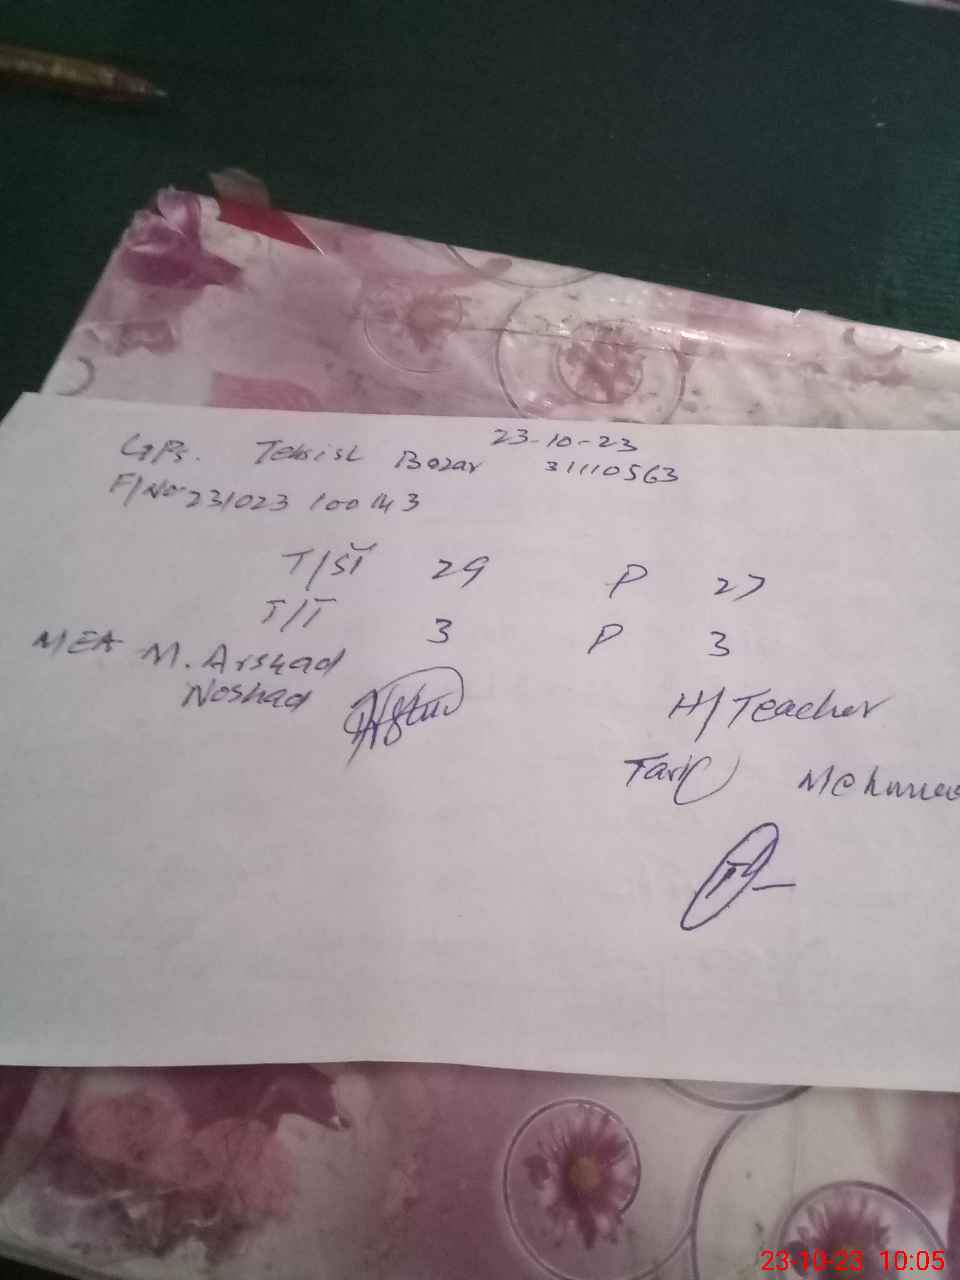 23-10-23
GPS. Tehsish Bazar 31110563
F/No 231023 100143
T/ST 29 P 27
T/T 3 P 3
MEA M. Arshad
Noshad
H/Teacher
Tariq
23-10-23 10:05